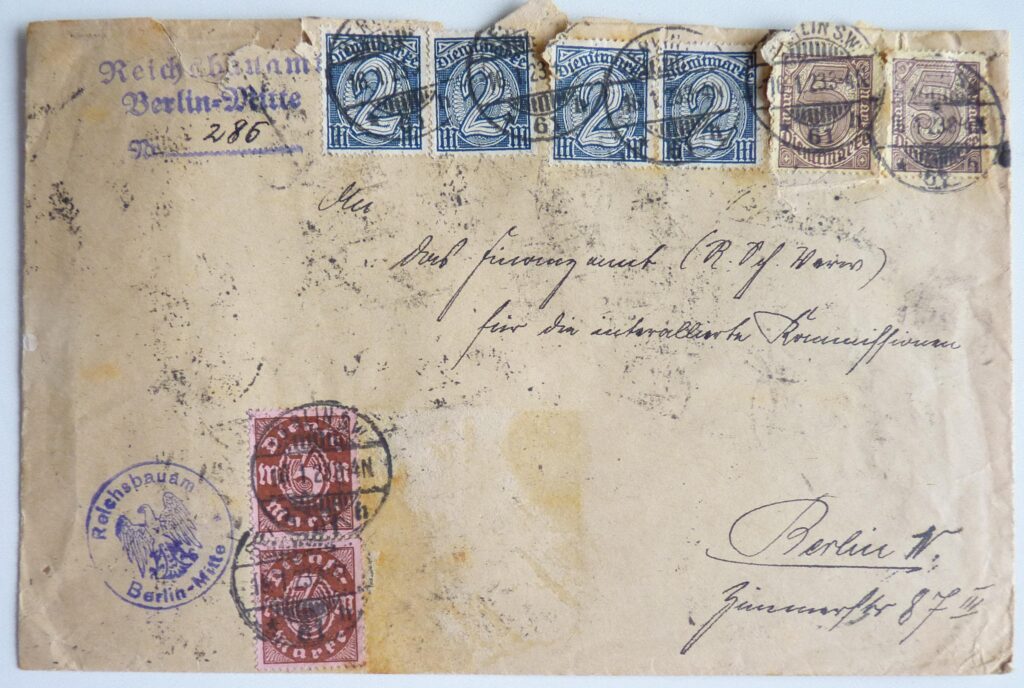 Reichsbauamt
Berlin-Mitte
№ 286
Dienstmarke 2 M
Dienstmarke 2 M
Dienstmarke 2 M
Dienstmarke 2 M
BERLIN S.W.
16.1.23.3-4N
61 h
An
das Finanzamt (R. Sch. Verw)
für die interalliierte Kommissionen
Berlin W.
Zimmerstr 87 III
Dienst
Marke
Dienst
Marke
Reichsbauamt
Berlin-Mitte